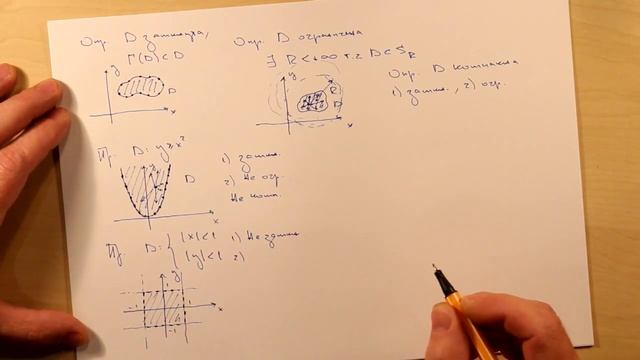 Опр. D замкнута,
Г(D) ⊂ D
y
D
x
Опр. D ограничена
∃ R < +∞ т.z D ⊂ S_R
y
R
D
x
Опр. D компактна
1) замкн., 2) огр.
Пр. D: y ≥ x²
y
D
x
1) замкн.
2) Не огр.
Не комп.
Пр. D: { |x| < 1
|y| < 1
1) Не замкн
2)
y
1
-1
1
x
-1